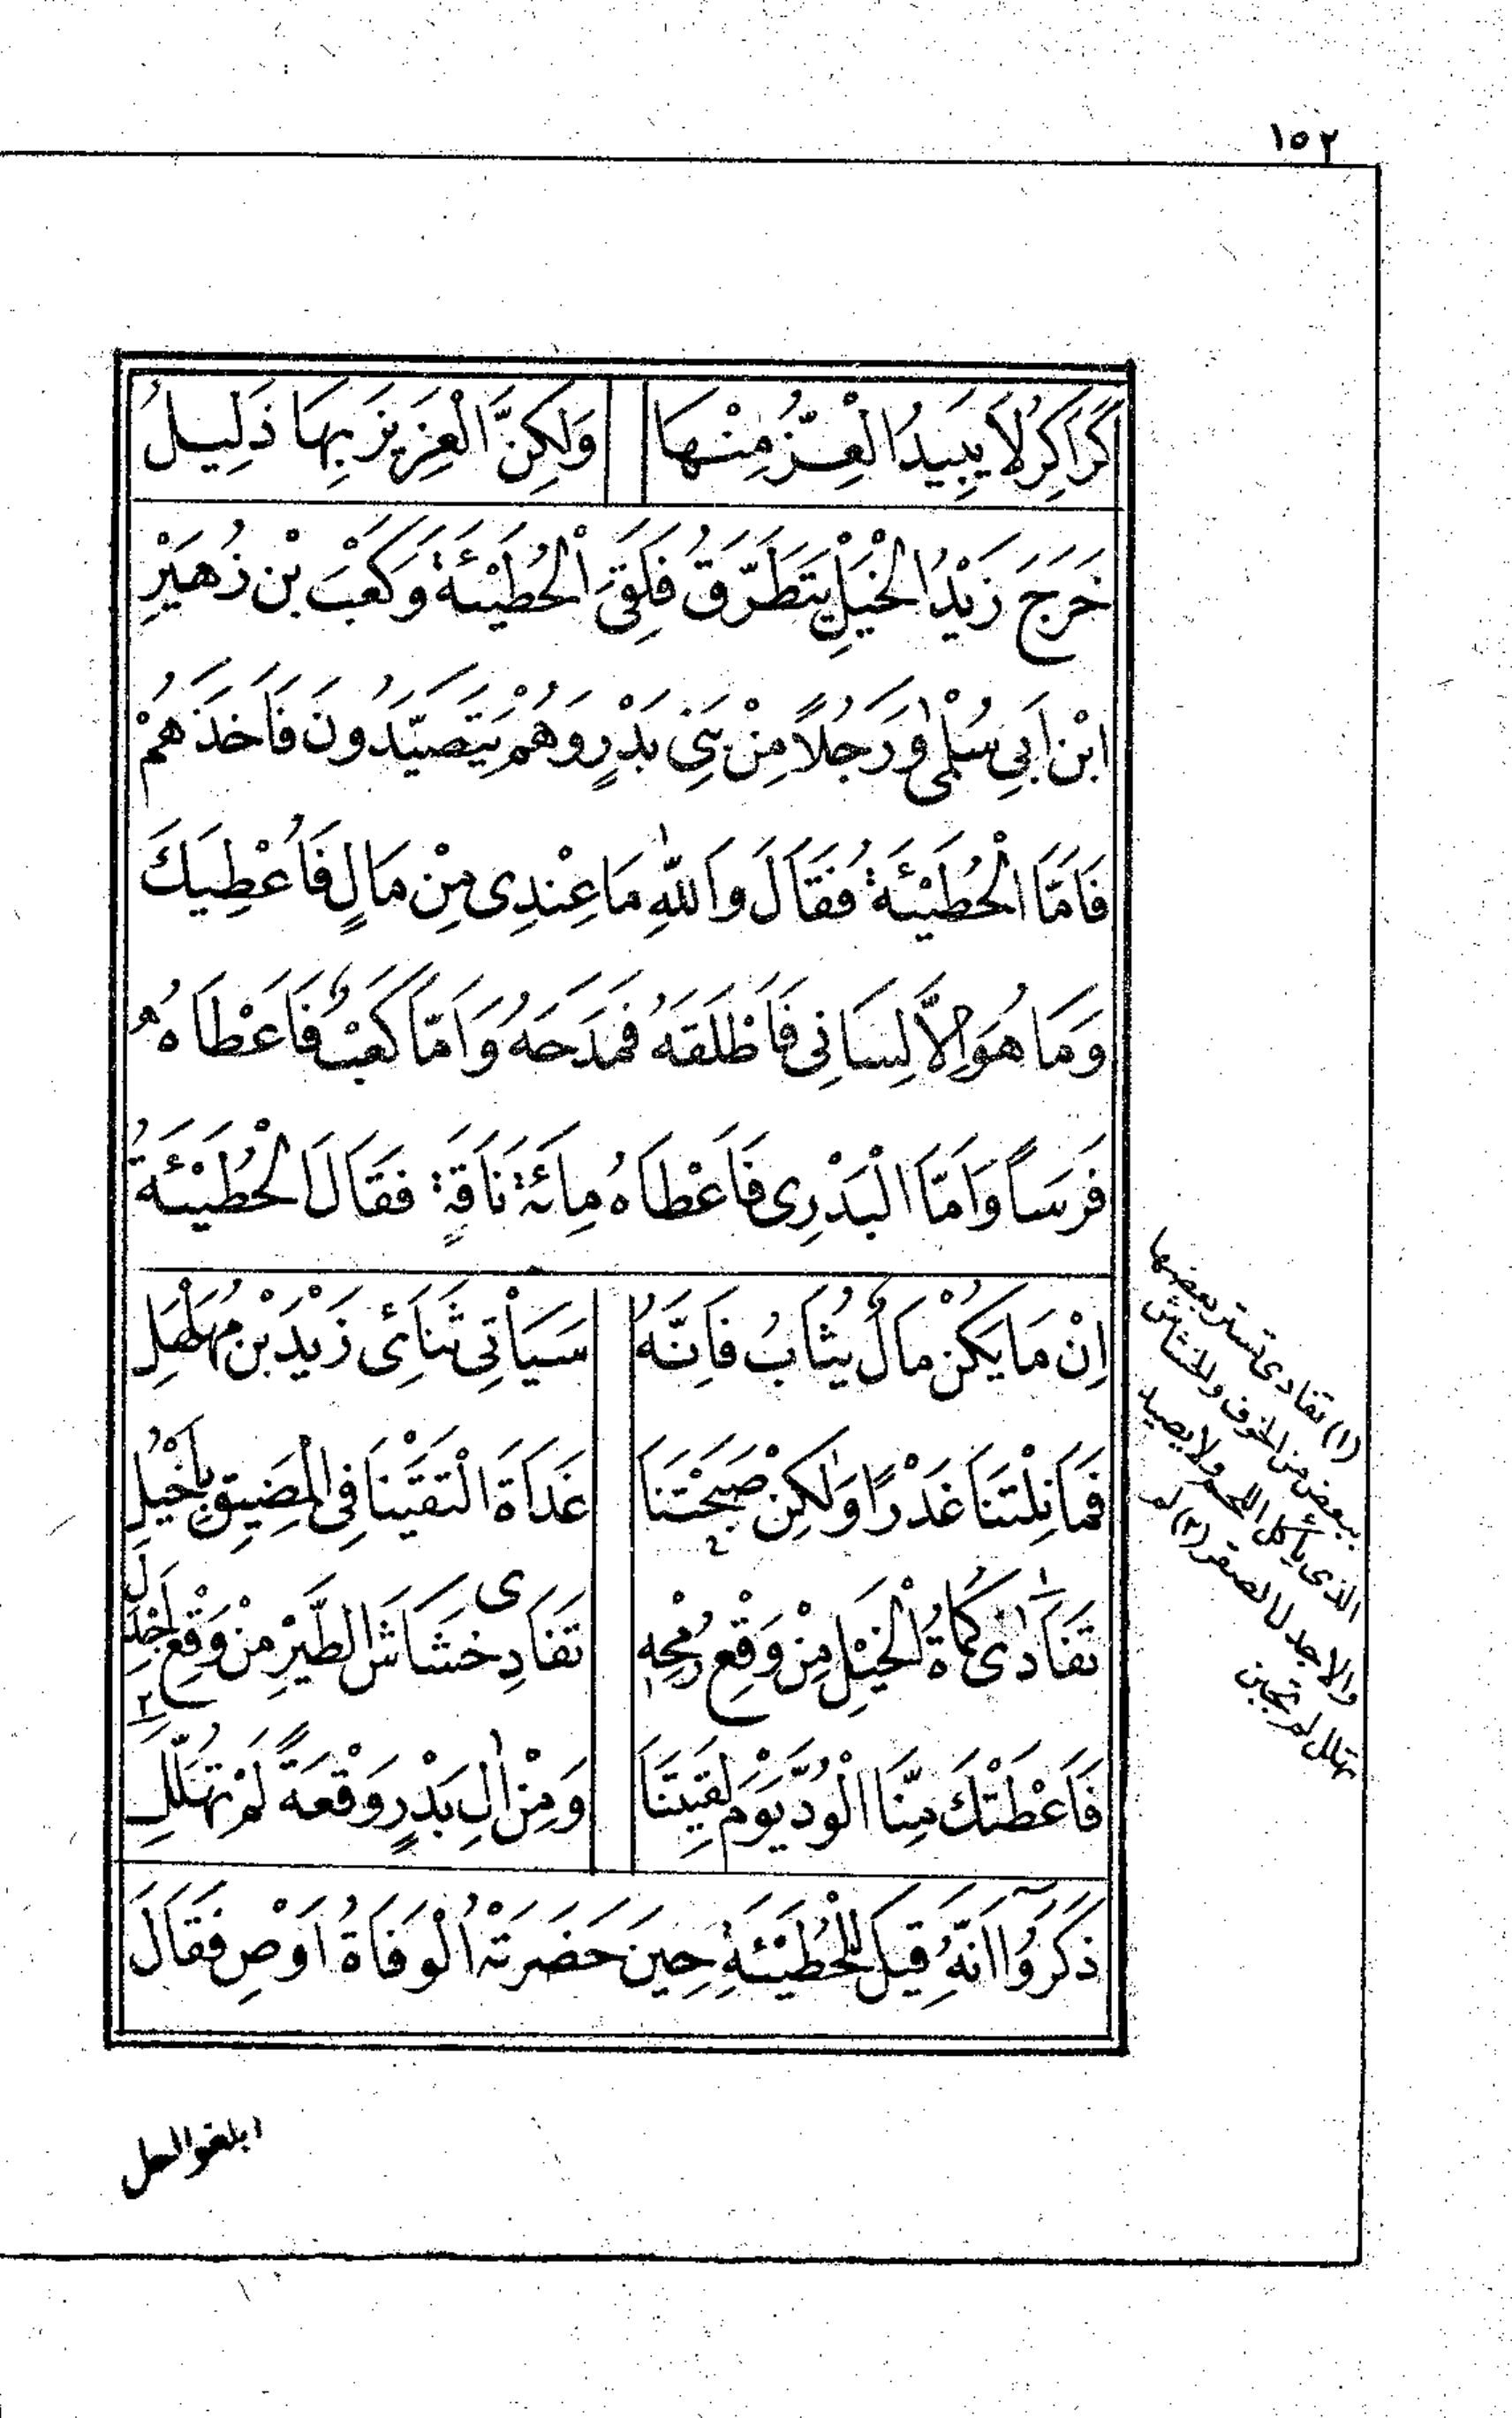 ١٥٢
كَرَاكِرُ لَا يَبِيدُ الْعِزُّ مِنْهَا وَلَكِنَّ الْعَزِيزَ بِهَا ذَلِيلُ
خَرَجَ زَيْدُ الْخَيْلِ يَتَطَرَّقُ فَلَقِيَ الْحُطَيْئَةَ وَكَعْبَ بْنَ زُهَيْرِ
ابْنَ اَبِي سُلْمٰى وَرَجُلًا مِنْ بَنِي بَدْرٍ وَهُمْ يَتَصَيَّدُونَ فَاَخَذَهُمْ
فَاَمَّا الْحُطَيْئَةُ فَقَالَ وَاللّٰهِ مَا عِنْدِى مِنْ مَالٍ فَاُعْطِيَكَ
وَمَا هُوَ اِلَّا لِسَانِى فَاَطْلَقَهُ فَمَدَحَهُ وَاَمَّا كَعْبٌ فَاَعْطَاهُ
فَرَسًا وَاَمَّا الْبَدْرِى فَاَعْطَاهُ مِائَةَ نَاقَةٍ فَقَالَ الْحُطَيْئَةُ
اِنْ مَا يَكُنْ مَالٌ يُثَابُ فَاِنَّهُ سَيَأْتِى ثَنَائِى زَيْدَ بْنَ مُهَلْهِلِ
فَمَا نِلْتَنَا غَدْرًا وَلٰكِنْ صَبَحْتَنَا غَدَاةَ الْتَقَيْنَا فِى الْمَضِيقِ بِاَخْيُلِ
تَفَادٰى كُمَاةُ الْخَيْلِ مِنْ وَقْعِ رُمْحِهِ تَفَادِى خَشَاشِ الطَّيْرِ مِنْ وَقْعِ اَجْدَلِ
فَاَعْطَتْكَ مِنَّا الْوُدَّ يَوْمَ لَقِيتَنَا وَمِنْ اٰلِ بَدْرٍ وَقْعَةً لَمْ تُهَلِّلِ
ذَكَرُوا اَنَّهُ قِيلَ لِلْحُطَيْئَةِ حِينَ حَضَرَتْهُ الْوَفَاةُ اَوْصِ فَقَالَ
(١) تفادى تستر بعضها
ببعض من الخوف والخشاش
الذى يأكل اللحم ولا يصيد
والاجدل الصقر (٢) لم
تهلل لم تجبن
ابلغوا